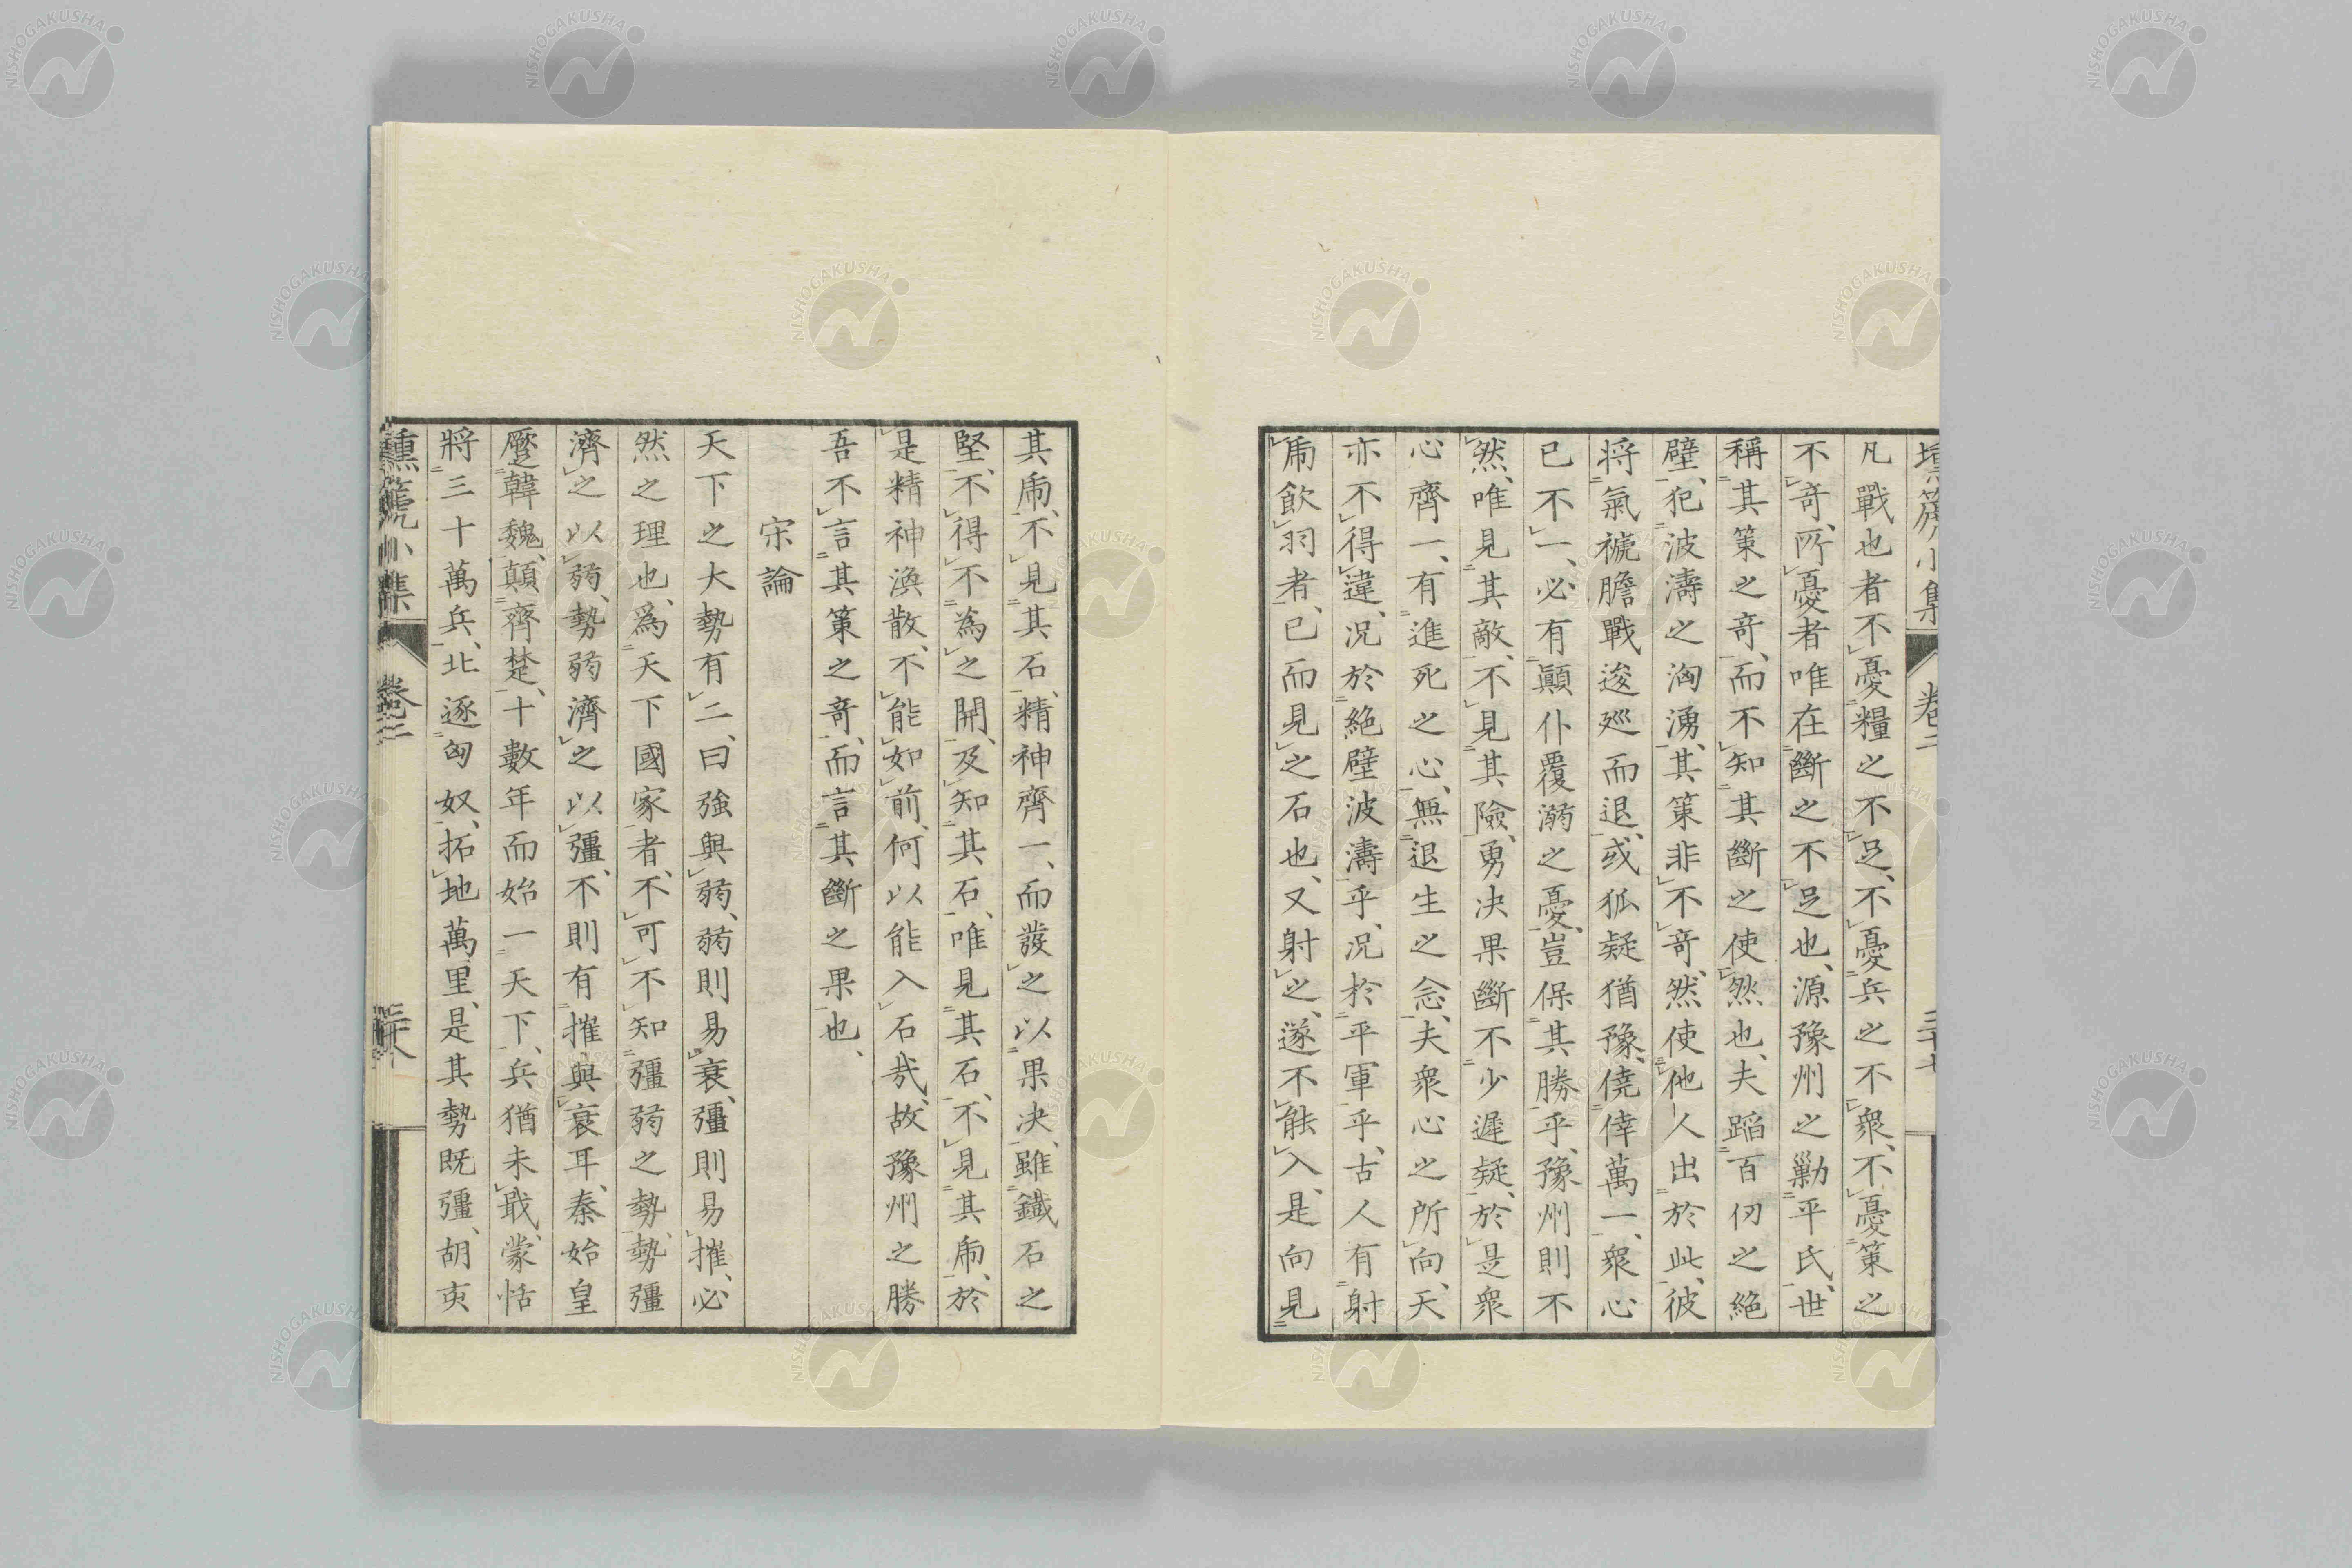 凡戰也者不憂糧之不足、不憂兵之不衆、不憂策之
不奇、所憂者唯在斷之不足也、源豫州之勦平氏、世
稱其策之奇、而不知其斷之使然也、夫蹈百仞之絕
壁、犯波濤之洶湧、其策非不奇、然使他人出於此、彼
將氣褫膽戰、逡巡而退、或狐疑猶豫、僥倖萬一、衆心
已不一、必有顚仆覆溺之憂、豈保其勝乎、豫州則不
然、唯見其敵、不見其險、勇决果斷不少遲疑、於是衆
心齊一、有進死之心、無退生之念、夫衆心之所向、天
亦不得違、况於絕壁波濤乎、况於平軍乎、古人有射
乕飮羽者、已而見之石也、又射之、遂不能入、是向見
其乕、不見其石、精神齊一、而發之以果决、雖鐵石之
堅、不得不為之開、及知其石、唯見其石、不見其乕、於
是精神渙散、不能如前、何以能入石哉、故豫州之勝
吾不言其策之奇、而言其斷之果也、
宋論
天下之大勢有二、曰強與弱、弱則易衰、彊則易摧、必
然之理也、爲天下國家者、不可不知彊弱之勢、勢彊
濟之以弱、勢弱濟之以彊、不則有摧與衰耳、秦始皇
蹙韓魏、顚齊楚、十數年而始一天下、兵猶未戢、蒙恬
將三十萬兵、北逐匈奴、拓地萬里、是其勢既彊、胡亥
小集
卷二
NISHOGAKUSHA